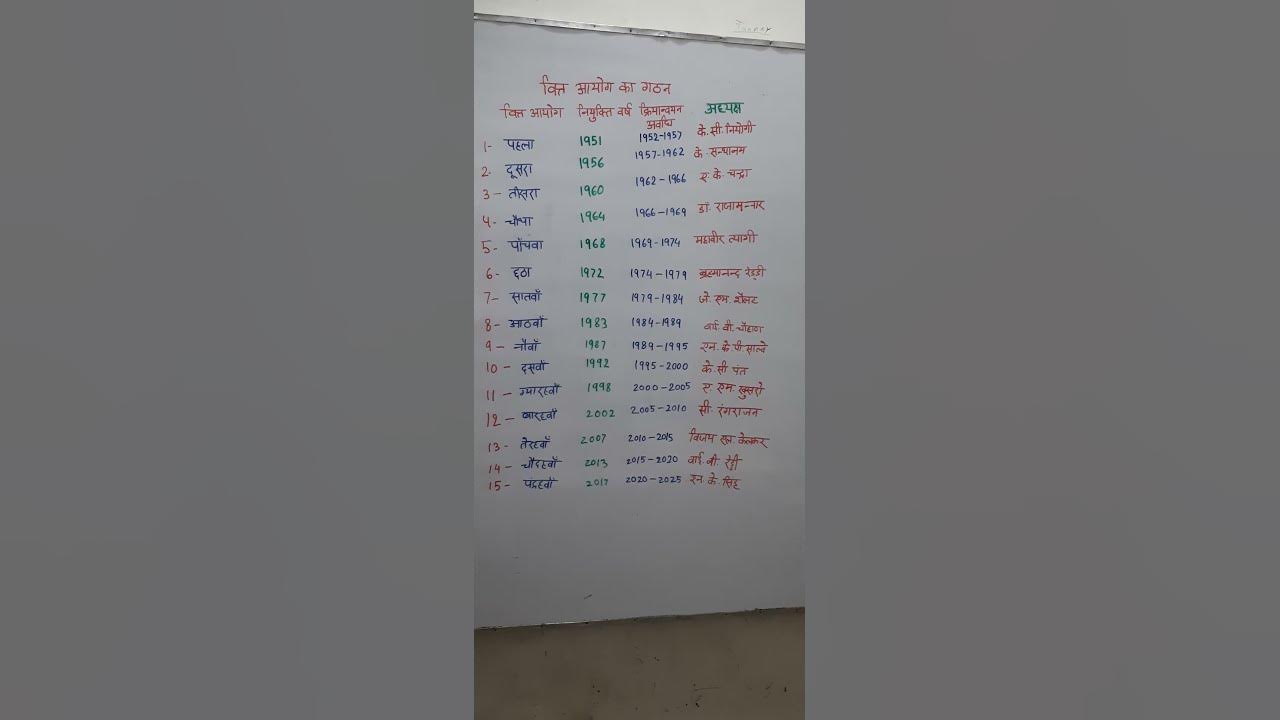 Tanmay
वित्त आयोग का गठन
वित्त आयोग नियुक्ति वर्ष क्रियान्वयन अवधि अध्यक्ष
1- पहला 1951 1952-1957 के. सी. नियोगी
2. दूसरा 1956 1957-1962 के. सन्थानम
3 - तीसरा 1960 1962-1966 ए. के. चन्द्रा
4- चौथा 1964 1966-1969 डॉ. राजामन्नार
5- पाँचवा 1968 1969-1974 महावीर त्यागी
6- छठा 1972 1974-1979 ब्रह्मानन्द रेड्डी
7- सातवाँ 1977 1979-1984 जे. एम. शैलट
8- आठवाँ 1983 1984-1989 वाई. वी. चौहाण
9 - नौवाँ 1987 1989-1995 एन. के. पी. साल्वे
10 - दसवाँ 1992 1995-2000 के. सी पंत
11 - ग्यारहवाँ 1998 2000-2005 ए. एम. खुसरो
12 - बारहवाँ 2002 2005-2010 सी. रंगराजन
13 - तेरहवाँ 2007 2010-2015 विजय एल. केलकर
14 - चौदहवाँ 2013 2015-2020 वाई. वी. रेड्डी
15 - पंद्रहवाँ 2017 2020-2025 एन. के. सिंह